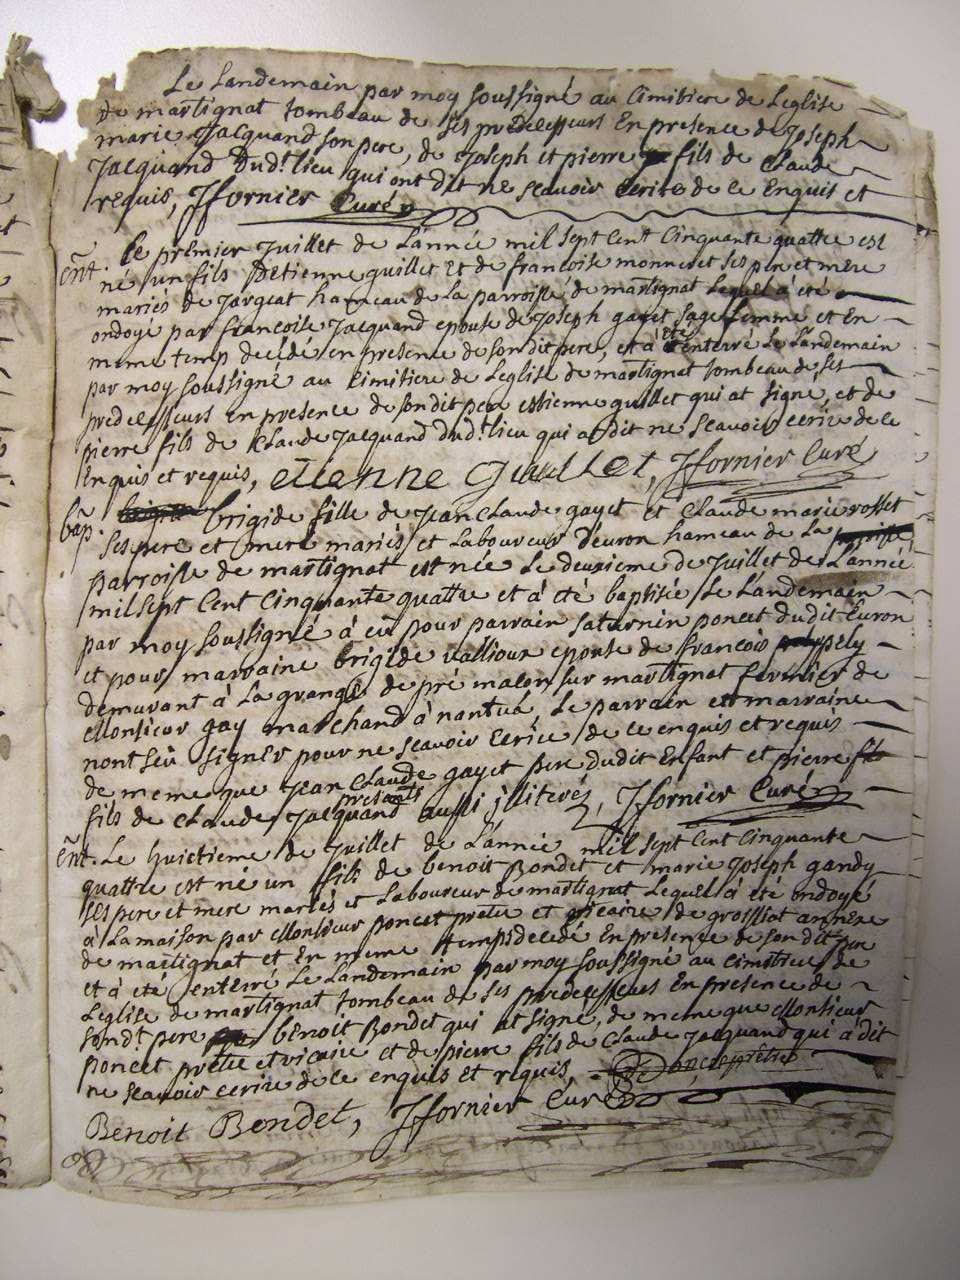 Le Landemain par moy soussigné au Cimitiere de Leglise
de martignat tombeau de ses predecesseurs En presence de Joseph
marie Jacquand son pere, de Joseph et pierre fils de Claude
Jacquand Dudt. lieu qui ont dit ne scavoir Ecrire de ce Enquis et
requis, Jffornier Curé
Ent. Le premier Juillet de L'année mil sept Cent Cinquante quattre est
né un fils d'Etienne guillet Et de francoise monneret ses pere et mere
mariés de Jargeat hameau de La parroisse de martignat Lequel a été
ondoyé par francoise Jacquand epouse de Joseph gayet sage femme et En
meme temp decédé en presence de son dit pere, et à été enterré Le Landemain
par moy soussigné au Cimitiere de Leglise de martignat tombeau de ses
predecesseurs en presence de son dit pere estienne guillet qui at signé, et de
pierre fils de Claude Jacquand Dudt. lieu qui a dit ne Scavoir ecrire de ce
Enquis et requis, etienne guillet, Jffornier Curé
bap. brigide fille de Jean Claude gayet et Claude marie rosset
ses pere et mere mariés et Laboureur d'évron hameau de La
parroisse de martignat est née Le deuxieme de Juillet de L'année
mil sept Cent Cinquante quattre et à été baptisée Le Landemain
par moy soussigné à eu pour parrain saturnin poncet dudit Evron
et pour marraine brigide vallioux epouse de francois pely
demurant à La grange de pré malon sur martignat fermier de
Monsieur gay marchand à nantua, Le parrain et marraine
nont seu signer pour ne scavoir Ecrire de ce enquis et requis
de meme que Jean Claude gayet pere dudit Enfant et pierre
fils de Claude Jacquand presents aussi jlliterés, Jffornier Curé
Ent. Le huictieme de Juillet de L'année mil sept Cent Cinquante
quattre est né un fils de benoit Bondet et marie Joseph gandy
ses pere et mere mariés et Laboureur de martignat Lequel à été ondoyé
à La maison par Monsieur poncet pretre et vicaire de groissiat annexe
de martignat et En meme temps decedé En presence de son dit pere
et à été enterré Le Landemain par moy soussigné au cimitiere de
Leglise de martignat tombeau de ses predecesseurs En presence de
sondt. pere benoit Bondet qui at signé, de meme que Monsieur
poncet pretre et vicaire et de pierre fils de Claude Jacquand qui à dit
ne scavoir ecrire de ce enquis et requis, Poncet prêtre
Benoit Bondet, Jffornier Curé